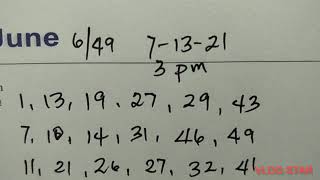 June 6/49 7-13-21
3 pm
1, 13, 19, 27, 29, 43
7, 10, 14, 31, 46, 49
11, 21, 26, 27, 32, 41
VLOG STAR